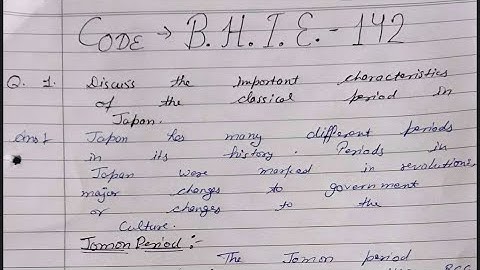 CODE → B.H.I.E.-142
Q. 1. Discuss the important characteristics
of the classical period in
Japan.
Ans 1 Japan has many different periods
in its history. Periods in
Japan were marked in revolutions
major changes to government
or changes to the
culture.
Jomon Period :-
The Jomon period